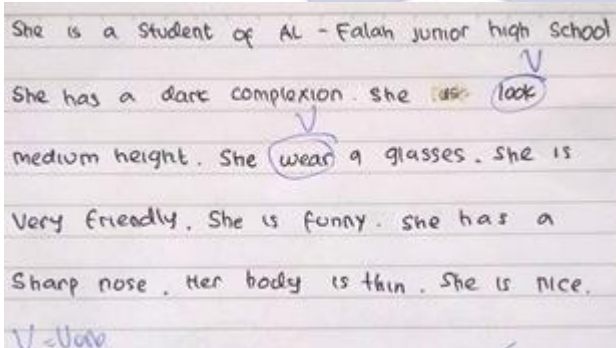 She is a Student of AL - Falah junior high School
V
She has a dark complexion. She look
V
medium height. She wear a glasses. She is
Very friendly. She is funny. She has a
Sharp nose. Her body is thin. She is nice.
V = Verb